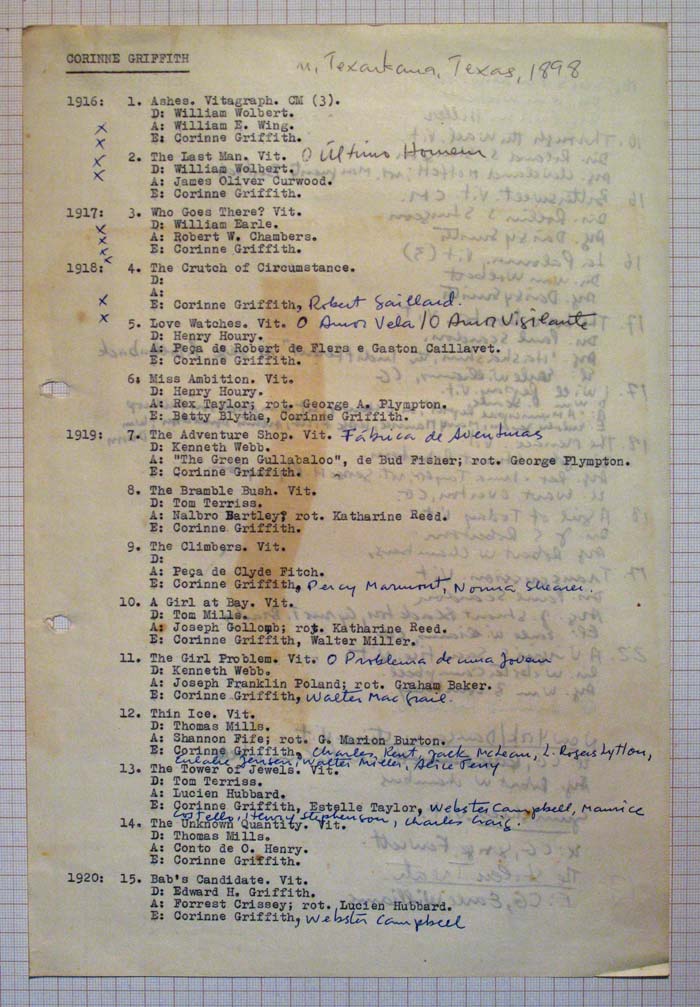 CORINNE GRIFFITH
n, Texarkana, Texas, 1898
1916: 1. Ashes. Vitagraph. CM (3).
D: William Wolbert.
A: William E. Wing.
E: Corinne Griffith.
2. The Last Man. Vit. O Último Homem
D: William Wolbert.
A: James Oliver Curwood.
E: Corinne Griffith.
1917: 3. Who Goes There? Vit.
D: William Earle.
A: Robert W. Chambers.
E: Corinne Griffith.
1918: 4. The Crutch of Circumstance.
D:
A:
E: Corinne Griffith, Robert Gaillard.
5. Love Watches. Vit. O Amor Vela / O Amor Vigilante
D: Henry Houry.
A: Peça de Robert de Flers e Gaston Caillavet.
E: Corinne Griffith.
6: Miss Ambition. Vit.
D: Henry Houry.
A: Rex Taylor; rot. George A. Plympton.
E: Betty Blythe, Corinne Griffith.
1919: 7. The Adventure Shop. Vit. Fábrica de Aventuras
D: Kenneth Webb.
A: "The Green Gullabaloo", de Bud Fisher; rot. George Plympton.
E: Corinne Griffith.
8. The Bramble Bush. Vit.
D: Tom Terriss.
A: Nalbro Bartley; rot. Katharine Reed.
E: Corinne Griffith.
9. The Climbers. Vit.
D:
A: Peça de Clyde Fitch.
E: Corinne Griffith, Percy Marmont, Norma Shearer.
10. A Girl at Bay. Vit.
D: Tom Mills.
A: Joseph Gollomb; rot. Katharine Reed.
E: Corinne Griffith, Walter Miller.
11. The Girl Problem. Vit. O Problema de uma Jovem
D: Kenneth Webb.
A: Joseph Franklin Poland; rot. Graham Baker.
E: Corinne Griffith, Walter MacGrail.
12. Thin Ice. Vit.
D: Thomas Mills.
A: Shannon Fife; rot. G. Marion Burton.
E: Corinne Griffith, Charles Kent, Jack McLean, L. Rogers Lytton,
Eulalie Jensen, Walter Miller, Alice Terry
13. The Tower of Jewels. Vit.
D: Tom Terriss.
A: Lucien Hubbard.
E: Corinne Griffith, Estelle Taylor, Webster Campbell, Maurice
Costello, Henry Stephenson, Charles Craig.
14. The Unknown Quantity. Vit.
D: Thomas Mills.
A: Conto de O. Henry.
E: Corinne Griffith.
1920: 15. Bab's Candidate. Vit.
D: Edward H. Griffith.
A: Forrest Crissey; rot. Lucien Hubbard.
E: Corinne Griffith, Webster Campbell